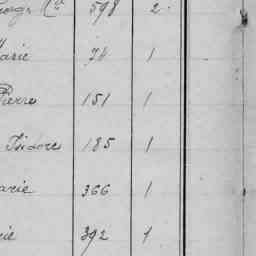 598 2
arie 74 1
Pierre 151 1
Isidore 185 1
arie 366 1
ie 392 1